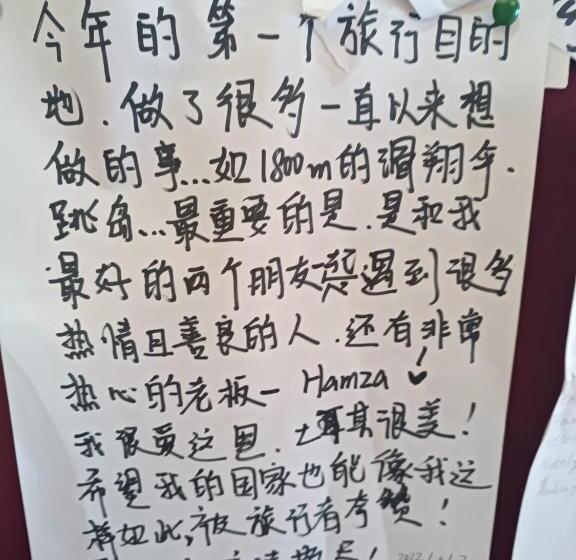 今年的第一个旅行目的
地.做了很多一直以来想
做的事...如1800m的滑翔伞.
跳岛...最重要的是.是和我
最好的两个朋友一起遇到很多
热情且善良的人.还有非常
热心的老板- Hamza
我很爱这里.土耳其很美!
希望我的国家也能像我这
样如此,被旅行者夸赞!